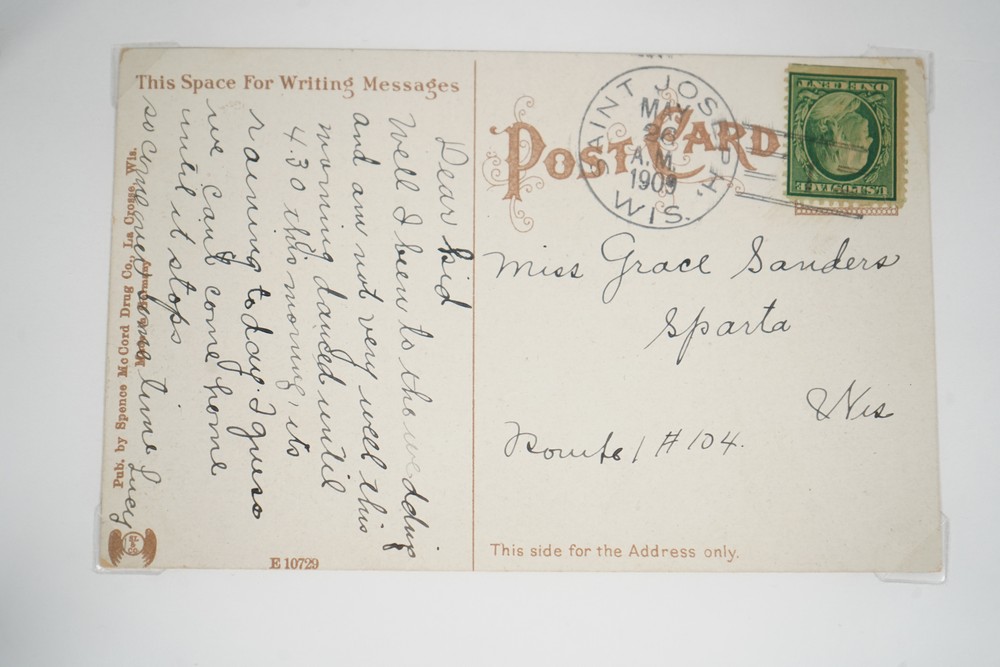 This Space For Writing Messages
Dear Kid
Well I been to the wedding
and am not very well this
morning danced until
4.30 this morning, its
raining today. I guess
we cant come home
until it stops
so come over some time Lucy
Pub. by Spence McCord Drug Co., La Crosse, Wis.
E 10729
POST CARD
SAINT JOSEPH, WIS.
MAY
26
A.M.
1909
U.S. POSTAGE
ONE CENT
Miss Grace Sanders
Sparta
Wis
Route 1 # 104.
This side for the Address only.